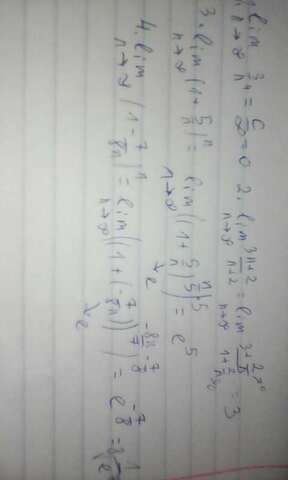 1. lim n→∞ 3/n⁴ = 6/∞ = 0 2. lim n→∞ 3n+2/n+2 = lim n→∞ 3+2/n→0 / 1+2/n→0 = 3
3. lim n→∞ (1+5/n)ⁿ = lim n→∞ ((1+5/n)^n/5)^5 = e^5
↘e
4. lim n→∞ (1-7/8n)ⁿ = lim n→∞ ((1+(-7/8n))^-8n/7)^-7/8 = e^-7/8 =
↘e